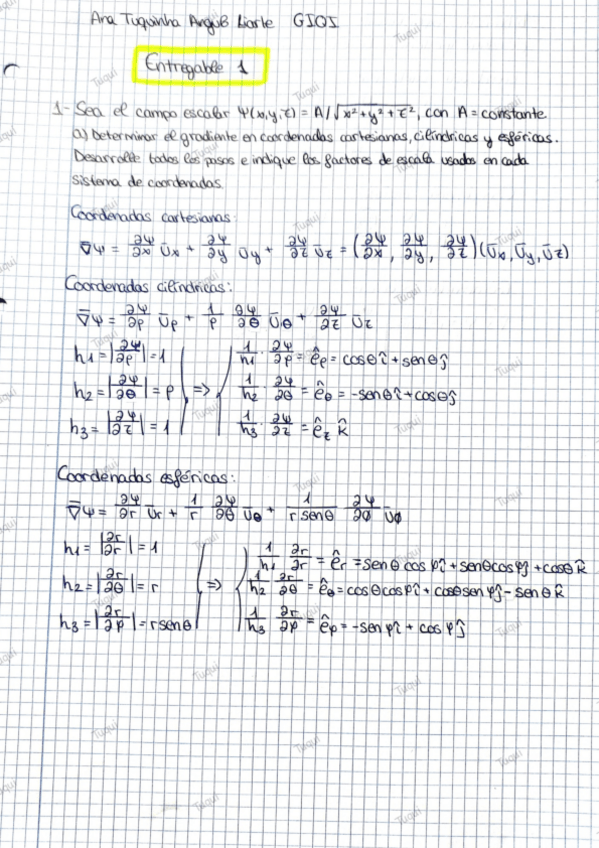 Ana Tuquinha Anguß Liarte GIQI
Entregable 1
1- Sea el campo escalar Ψ(x,y,z) = A/√x²+y²+z², con A = constante
a) Determinar el gradiente en coordenadas cartesianas, cilíndricas y esféricas.
Desarrolle todos los pasos e indique los factores de escala usados en cada
sistema de coordenadas.
Coordenadas cartesianas:
∇Ψ = ∂Ψ/∂x Ūx + ∂Ψ/∂y Ūy + ∂Ψ/∂z Ūz = (∂Ψ/∂x, ∂Ψ/∂y, ∂Ψ/∂z)(Ūx, Ūy, Ūz)
Coordenadas cilíndricas:
∇Ψ = ∂Ψ/∂ρ Ūρ + 1/ρ ∂Ψ/∂θ Ūθ + ∂Ψ/∂z Ūz
h1 = |∂Ψ/∂ρ| = 1 1/h1 · ∂Ψ/∂ρ = êρ = cosθî + senθĵ
h2 = |∂Ψ/∂θ| = ρ => 1/h2 · ∂Ψ/∂θ = êθ = -senθî + cosθĵ
h3 = |∂Ψ/∂z| = 1 1/h3 · ∂Ψ/∂z = êz k̂
Coordenadas esféricas:
∇Ψ = ∂Ψ/∂r Ūr + 1/r ∂Ψ/∂θ Ūθ + 1/r senθ ∂Ψ/∂Ø ŪØ
h1 = |∂r/∂r| = 1 1/h1 ∂r/∂r = êr = senθ cosφî + senθcosφĵ + cosθk̂
h2 = |∂r/∂θ| = r => 1/h2 ∂r/∂θ = êθ = cosθcosφî + cosθsenφĵ - senθk̂
h3 = |∂r/∂φ| = rsenθ 1/h3 ∂r/∂φ = êφ = -senφî + cosφĵ